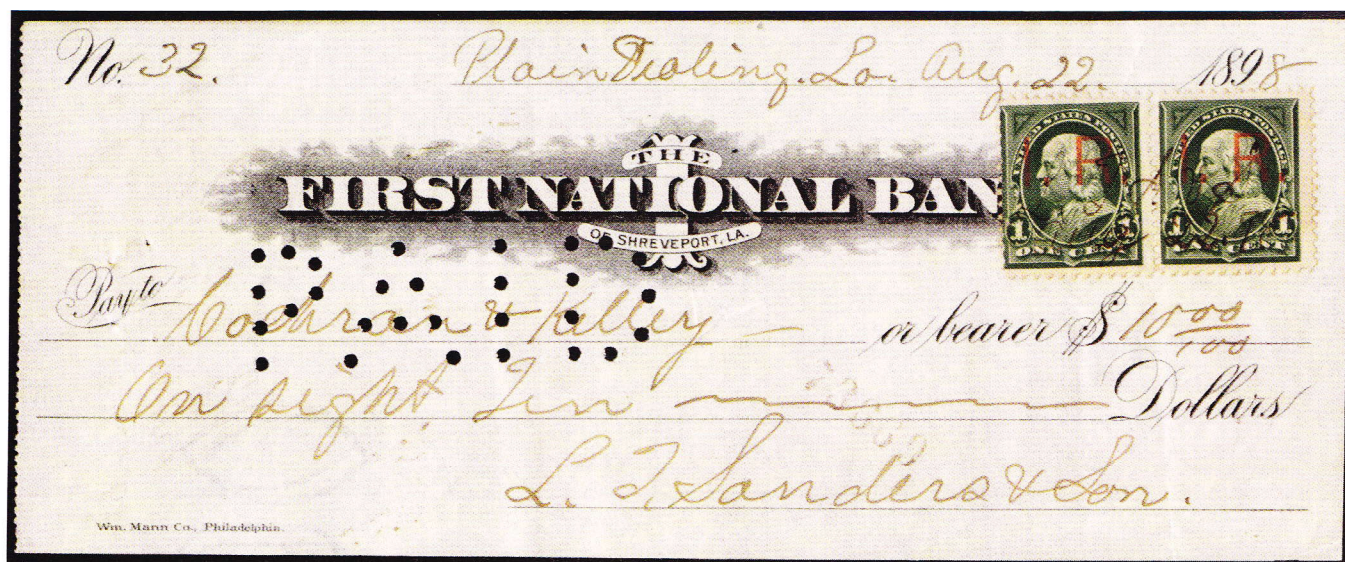 No. 32. Plain Dealing. La. Aug. 22. 1898
THE
FIRST NATIONAL BAN
OF SHREVEPORT, LA.
UNITED STATES POSTAGE UNITED STATES POSTAGE
I.R. I.R.
1 ONE CENT 1 ONE CENT 1
PAID
Pay to Cochran & Kelley or bearer $ 10 00/100
On sight Ten Dollars
L. T. Sanders & Son.
Wm. Mann Co., Philadelphia.